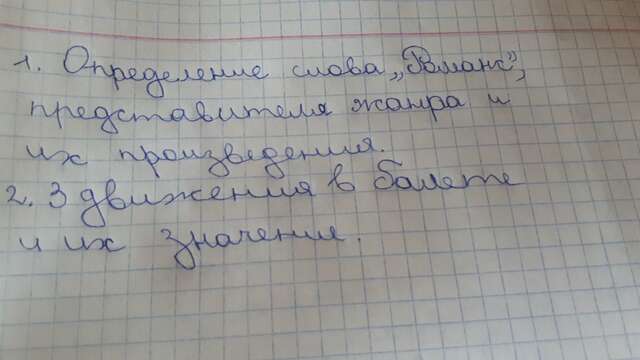 1. Определение слова „Романс",
представителя жанра и
их произведения.
2. 3 движения в балете
и их значение.